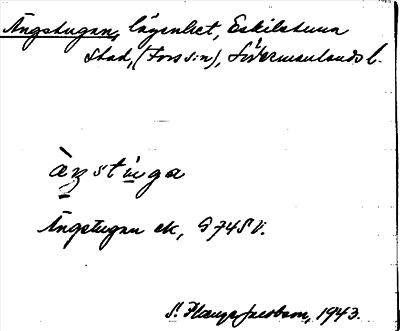 Ängstugan, lägenhet, Eskilstuna
stad, (Fors s:n), Södermanlands l.
äŋstuga
Ängstugan ek, G 74SV.
S. Plaenge Jacobson, 1943.